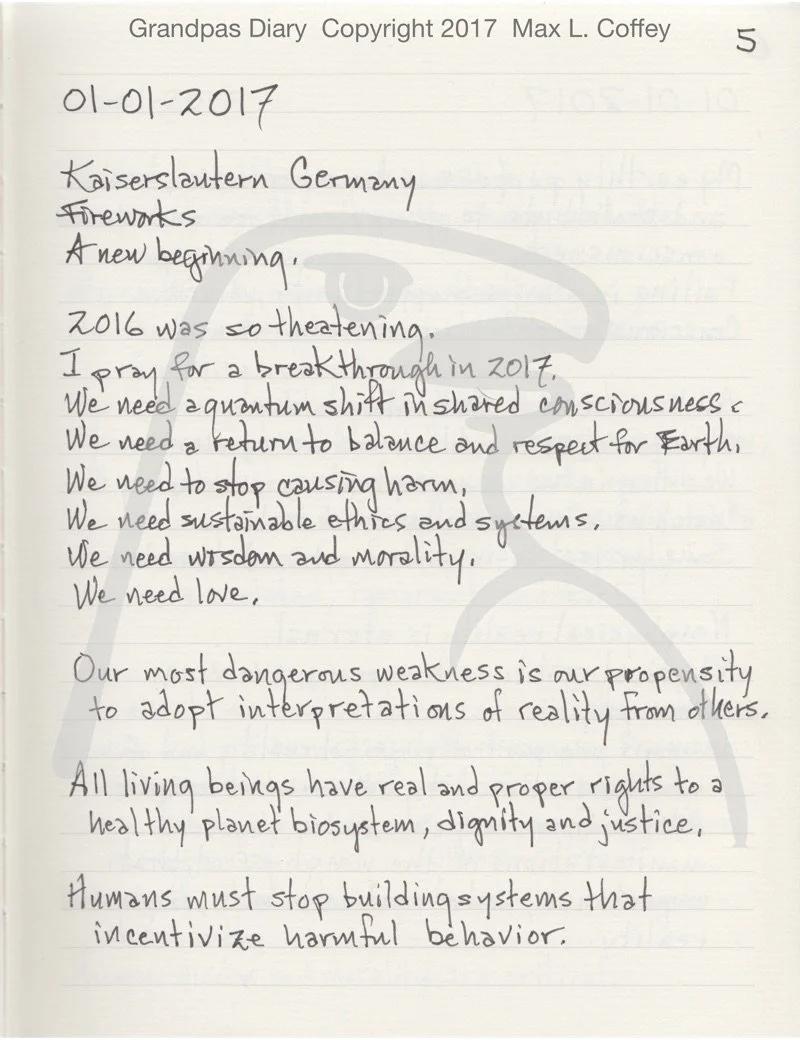 Grandpas Diary Copyright 2017 Max L. Coffey
5
01-01-2017
Kaiserslautern Germany
Fireworks
A new beginning.
2016 was so theatening.
I pray for a breakthrough in 2017.
We need a quantum shift in shared consciousness.
We need a return to balance and respect for Earth.
We need to stop causing harm.
We need sustainable ethics and systems.
We need wisdom and morality.
We need love.
Our most dangerous weakness is our propensity
to adopt interpretations of reality from others.
All living beings have real and proper rights to a
healthy planet biosystem, dignity and justice.
Humans must stop building systems that
incentivize harmful behavior.